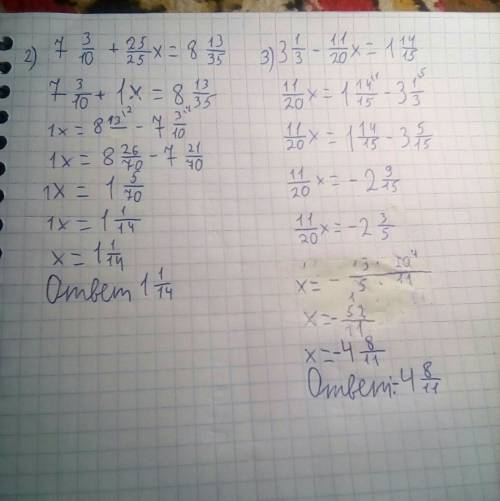 2) 7 3/10 + 25/25 x = 8 13/35
7 3/10 + 1x = 8 13/35
1x = 8 13/ \2 - 7 3/10 \7
1x = 8 26/70 - 7 21/70
1x = 1 5/70
1x = 1 1/14
x = 1 1/14
Ответ 1 1/14
3) 3 1/3 - 11/20 x = 1 14/15
11/20 x = 1 14/15 \1 - 3 1/3 \5
11/20 x = 1 14/15 - 3 5/15
11/20 x = - 2 9/15
11/20 x = - 2 3/5
x = - 13 · 20 \4 / 5 · 11
x = - 52/11
x = - 4 8/11
Ответ: - 4 8/11